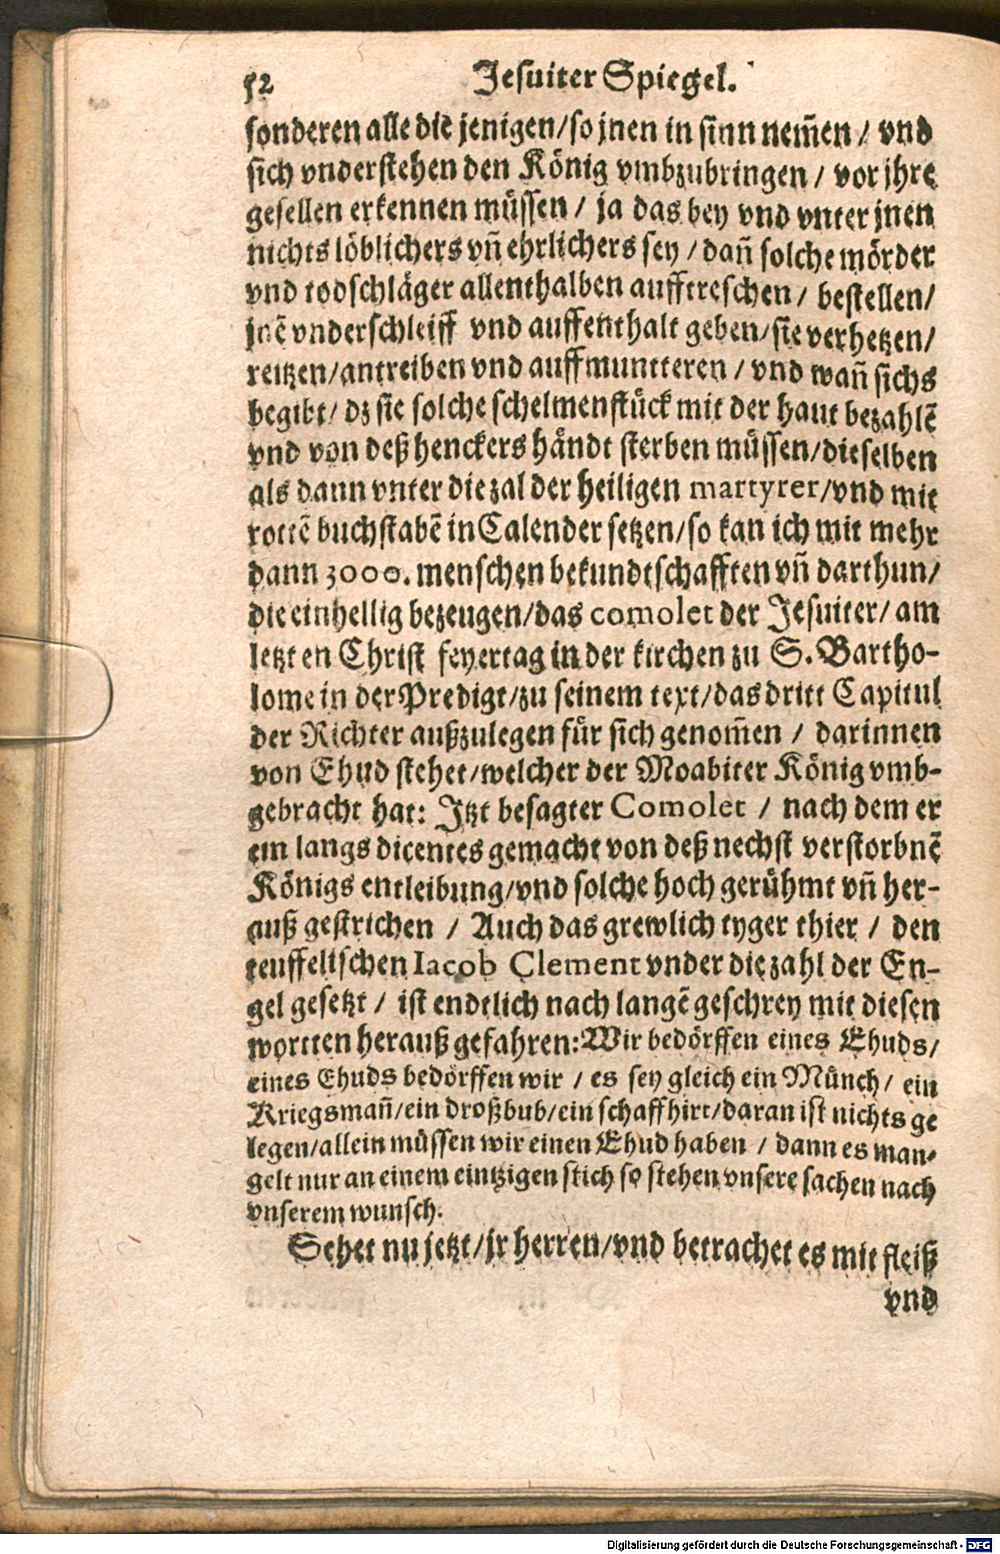 52 Jesuiter Spiegel.
sonderen alle die jenigen/so jnen in sinn nem̃en/ vnd
sich vnderstehen den König vmbzubringen/ vor jhre
gesellen erkennen müssen/ ja das bey vnd vnter jnen
nichts löblichers vñ ehrlichers sey/dañ solche mörder
vnd todschläger allenthalben aufftreschen/ bestellen/
jnẽ vnderschleiff vnd auffenthalt geben/sie verhetzen/
reitzen/antreiben vnd auffmuntteren/vnd wañ sichs
begibt/ dz sie solche schelmenstück mit der haut bezahlẽ
vnd von deß henckers händt sterben müssen/dieselben
als dann vnter die zal der heiligen martyrer/vnd mit
rottẽ buchstabẽ in Calender setzen/so kan ich mit mehr
dann 3000. menschen bekundtschafften vñ darthun/
die einhellig bezeugen/das comolet der Jesuiter/ am
letzten Christ feyertag in der kirchen zu S. Bartho-
lome in der Predigt/zu seinem text/das dritt Capitul
der Richter außzulegen für sich genom̃en/ darinnen
von Ehud stehet/welcher der Moabiter König vmb-
gebracht hat: Jtzt besagter Comolet/ nach dem er
ein langs dicentes gemacht von deß nechst verstorbnẽ
Königs entleibung/vnd solche hoch gerühmt vñ her-
auß gestrichen/ Auch das grewlich tyger thier/ den
teuffelischen Iacob Clement vnder die zahl der En-
gel gesetzt/ ist endtlich nach langẽ geschrey mit diesen
wortten herauß gefahren: Wir bedörffen eines Ehuds/
eines Ehuds bedörffen wir/ es sey gleich ein Münch/ ein
Kriegsmañ/ein droßbub/ein schaffhirt/daran ist nichts ge
legen/allein müssen wir einen Ehud haben/ dann es man-
gelt nur an einem eintzigen stich so stehen vnsere sachen nach
vnserem wunsch.
Sehet nu jetzt/jr herren/vnd betrachet es mit fleiß
vnd
Digitalisierung gefördert durch die Deutsche Forschungsgemeinschaft - DFG